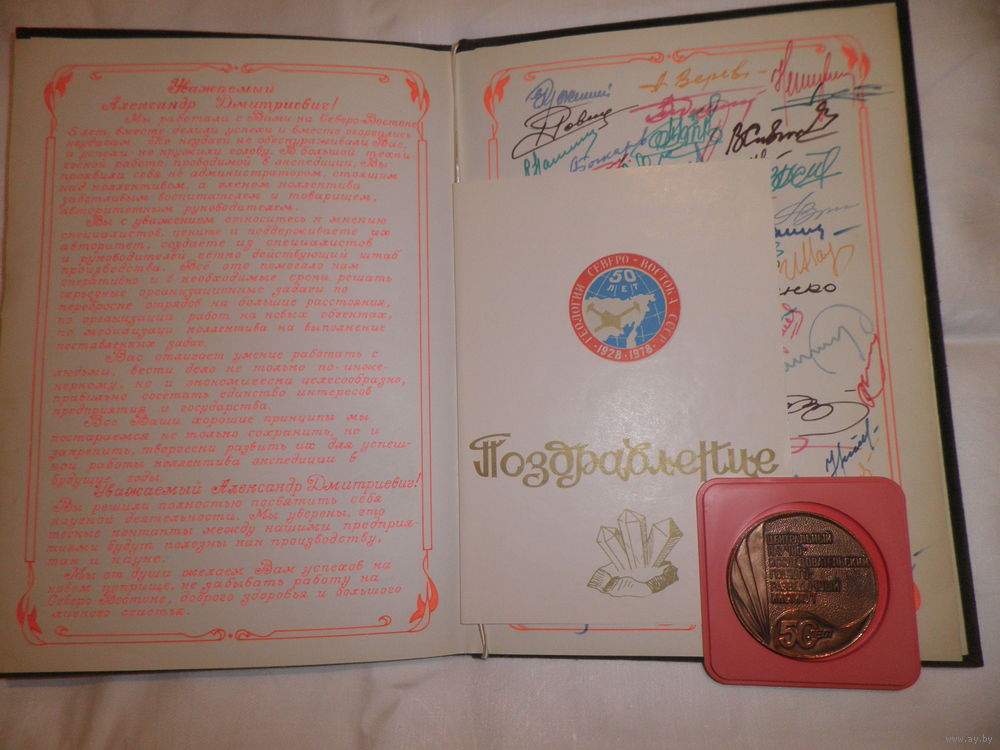 Уважаемый
Александр Дмитриевич!
Мы работали с Вами на Северо-Востоке
5 лет, вместе делили успехи и вместе огорчались
неудачам. Но неудачи не обескураживали Вас,
а успехи - не кружили голову. В большой техни-
ческой работе, проводимой в экспедиции, Вы
проявили себя не администратором, стоящим
над коллективом, а членом коллектива
заботливым воспитателем и товарищем,
авторитетным руководителем.
Вы с уважением относитесь к мнению
специалистов, цените и поддерживаете их
авторитет, создаёте из специалистов
и руководителей четко действующий штаб
производства. Всё это помогало нам
оперативно и в необходимые сроки решать
серьезные организационные задачи по
переброске отрядов на большие расстояния,
по организации работ на новых объектах,
по мобилизации коллектива на выполнение
поставленных задач.
Вас отличает умение работать с
людьми, вести дело не только по-инже-
нерному, но и экономически целесообразно,
правильно сочетать единство интересов
предприятия и государства.
Все Ваши хорошие принципы мы
постараемся не только сохранить, но и
закрепить, творчески развить их для успеш-
ной работы коллектива экспедиции в
будущие годы.
Уважаемый Александр Дмитриевич!
Вы решили полностью посвятить себя
научной деятельности. Мы уверены, что
тесные контакты между нашими предприя-
тиями будут полезны как производству,
так и науке.
Мы от души желаем Вам успехов на
новом поприще, не забывать работу на
Северо-Востоке, доброго здоровья и большого
личного счастья.
ГЕОЛОГИИ СЕВЕРО-ВОСТОКА СССР
50
ЛЕТ
·1928·1978·
Поздравление
ЦЕНТРАЛЬНЫЙ
НАУЧНО-
ИССЛЕДОВАТЕЛЬСКИЙ
ГЕОЛОГО-
РАЗВЕДОЧНЫЙ
ИНСТИТУТ
50 лет
www.ay.by